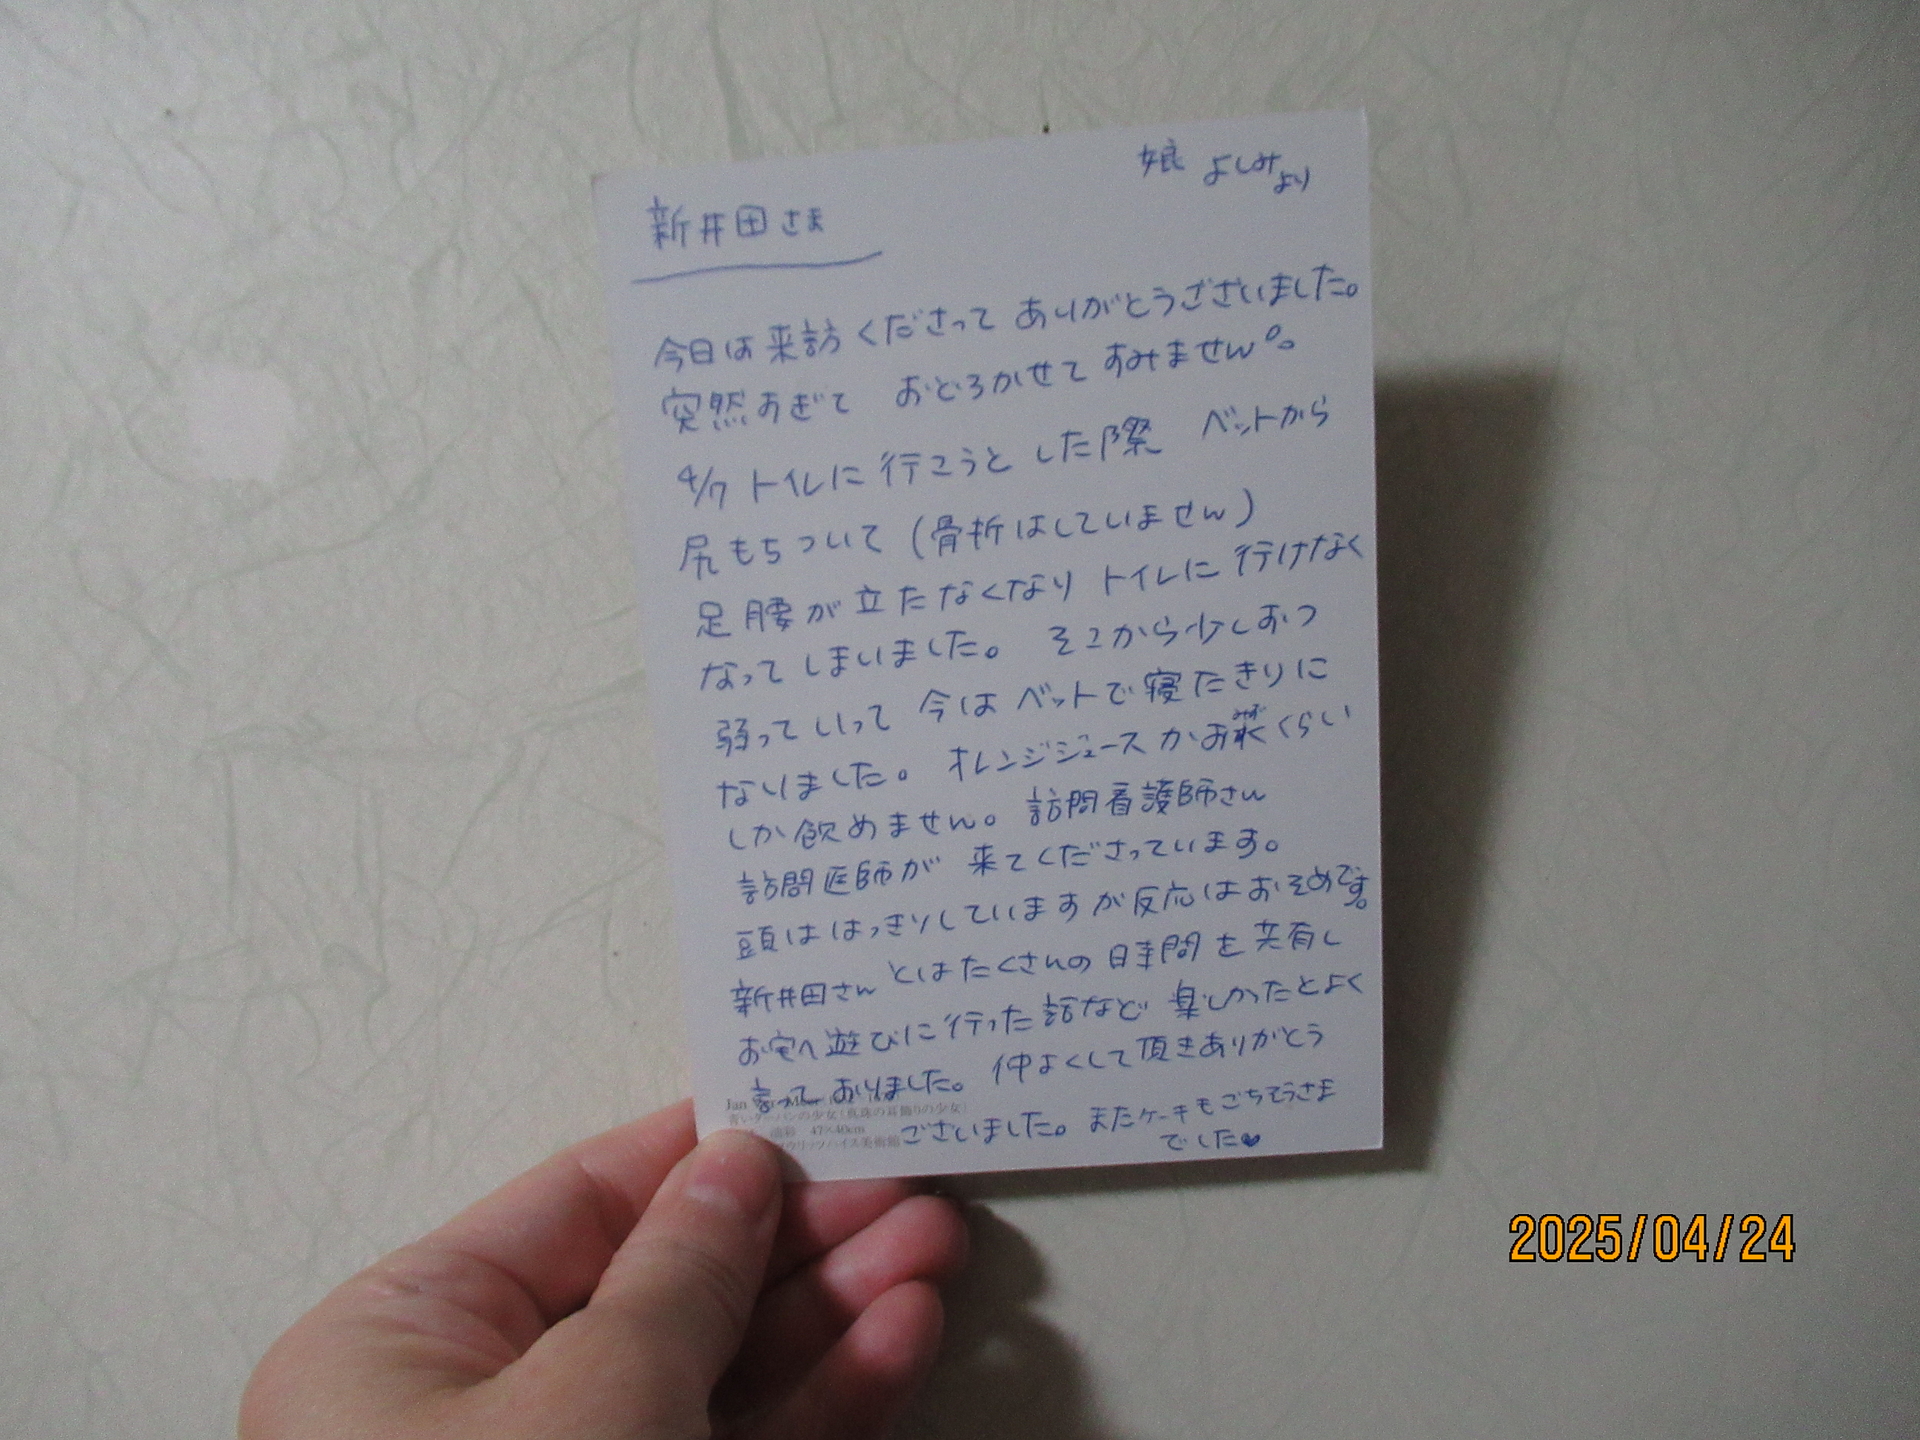 娘 よしみより
新井田さま
今日は来訪くださって ありがとうございました。
突然すぎて おどろかせて すみません。
4/7 トイレに行こうと した際 ベットから
尻もちついて (骨折はしていません)
足腰が立たなくなり トイレに行けなく
なってしまいました。 そこから少しおつ
弱っていって 今はベットで寝たきりに
なりました。 オレンジジュースかお くらい
しか飲めません。 訪問看護師さん
訪問医師が 来てくださっています。
頭ははっきりしていますが反応はおそめです。
新井田さん とはたくさんの時間を共有し
お宅へ遊びに行った話など 楽しかったとよく
言っておりました。 仲よくして頂きありがとう
ございました。 またケーキもごちそうさま
でした♥
Jan
青いターバンの少女(真珠の耳飾りの少女)
油彩 47×40cm
マウリッツハイス美術館
2025/04/24